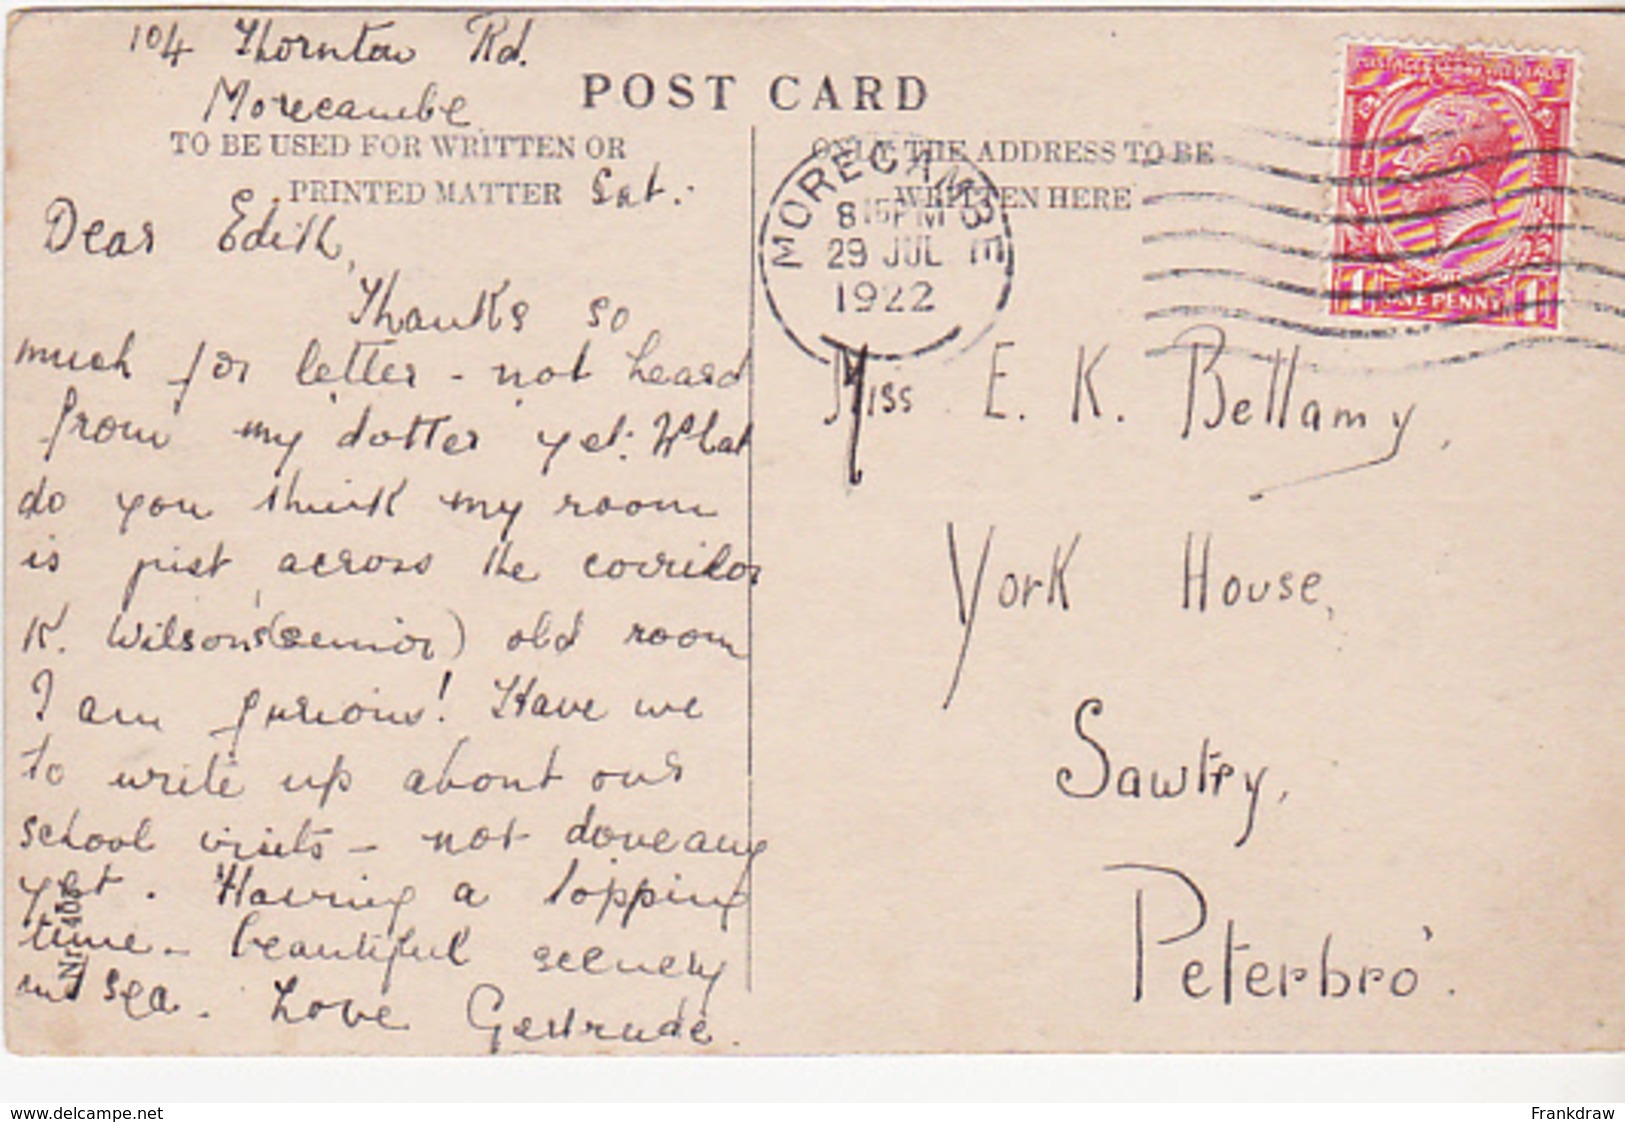 104 Thornton Rd.
Morecambe
POST CARD
TO BE USED FOR WRITTEN OR
PRINTED MATTER
Sat.
Dear Edith,
Thanks so
much for letter - not heard
from my 'dotter' yet. What
do you think my room
is just across the corridor
K. Wilson's (senior) old room
I am furious! Have we
to write up about our
school visits - not done any
yet. Having a topping
time - beautiful scenery
and sea. Love Gertrude.
Nr. 408
ONLY THE ADDRESS TO BE
WRITTEN HERE
MORECAMBE
8 15 PM
29 JUL
1922
POSTAGE & REVENUE
1 ONE PENNY 1
Miss E. K. Bellamy,
York House,
Sawtry,
Peterbro'.
www.delcampe.net
Frankdraw